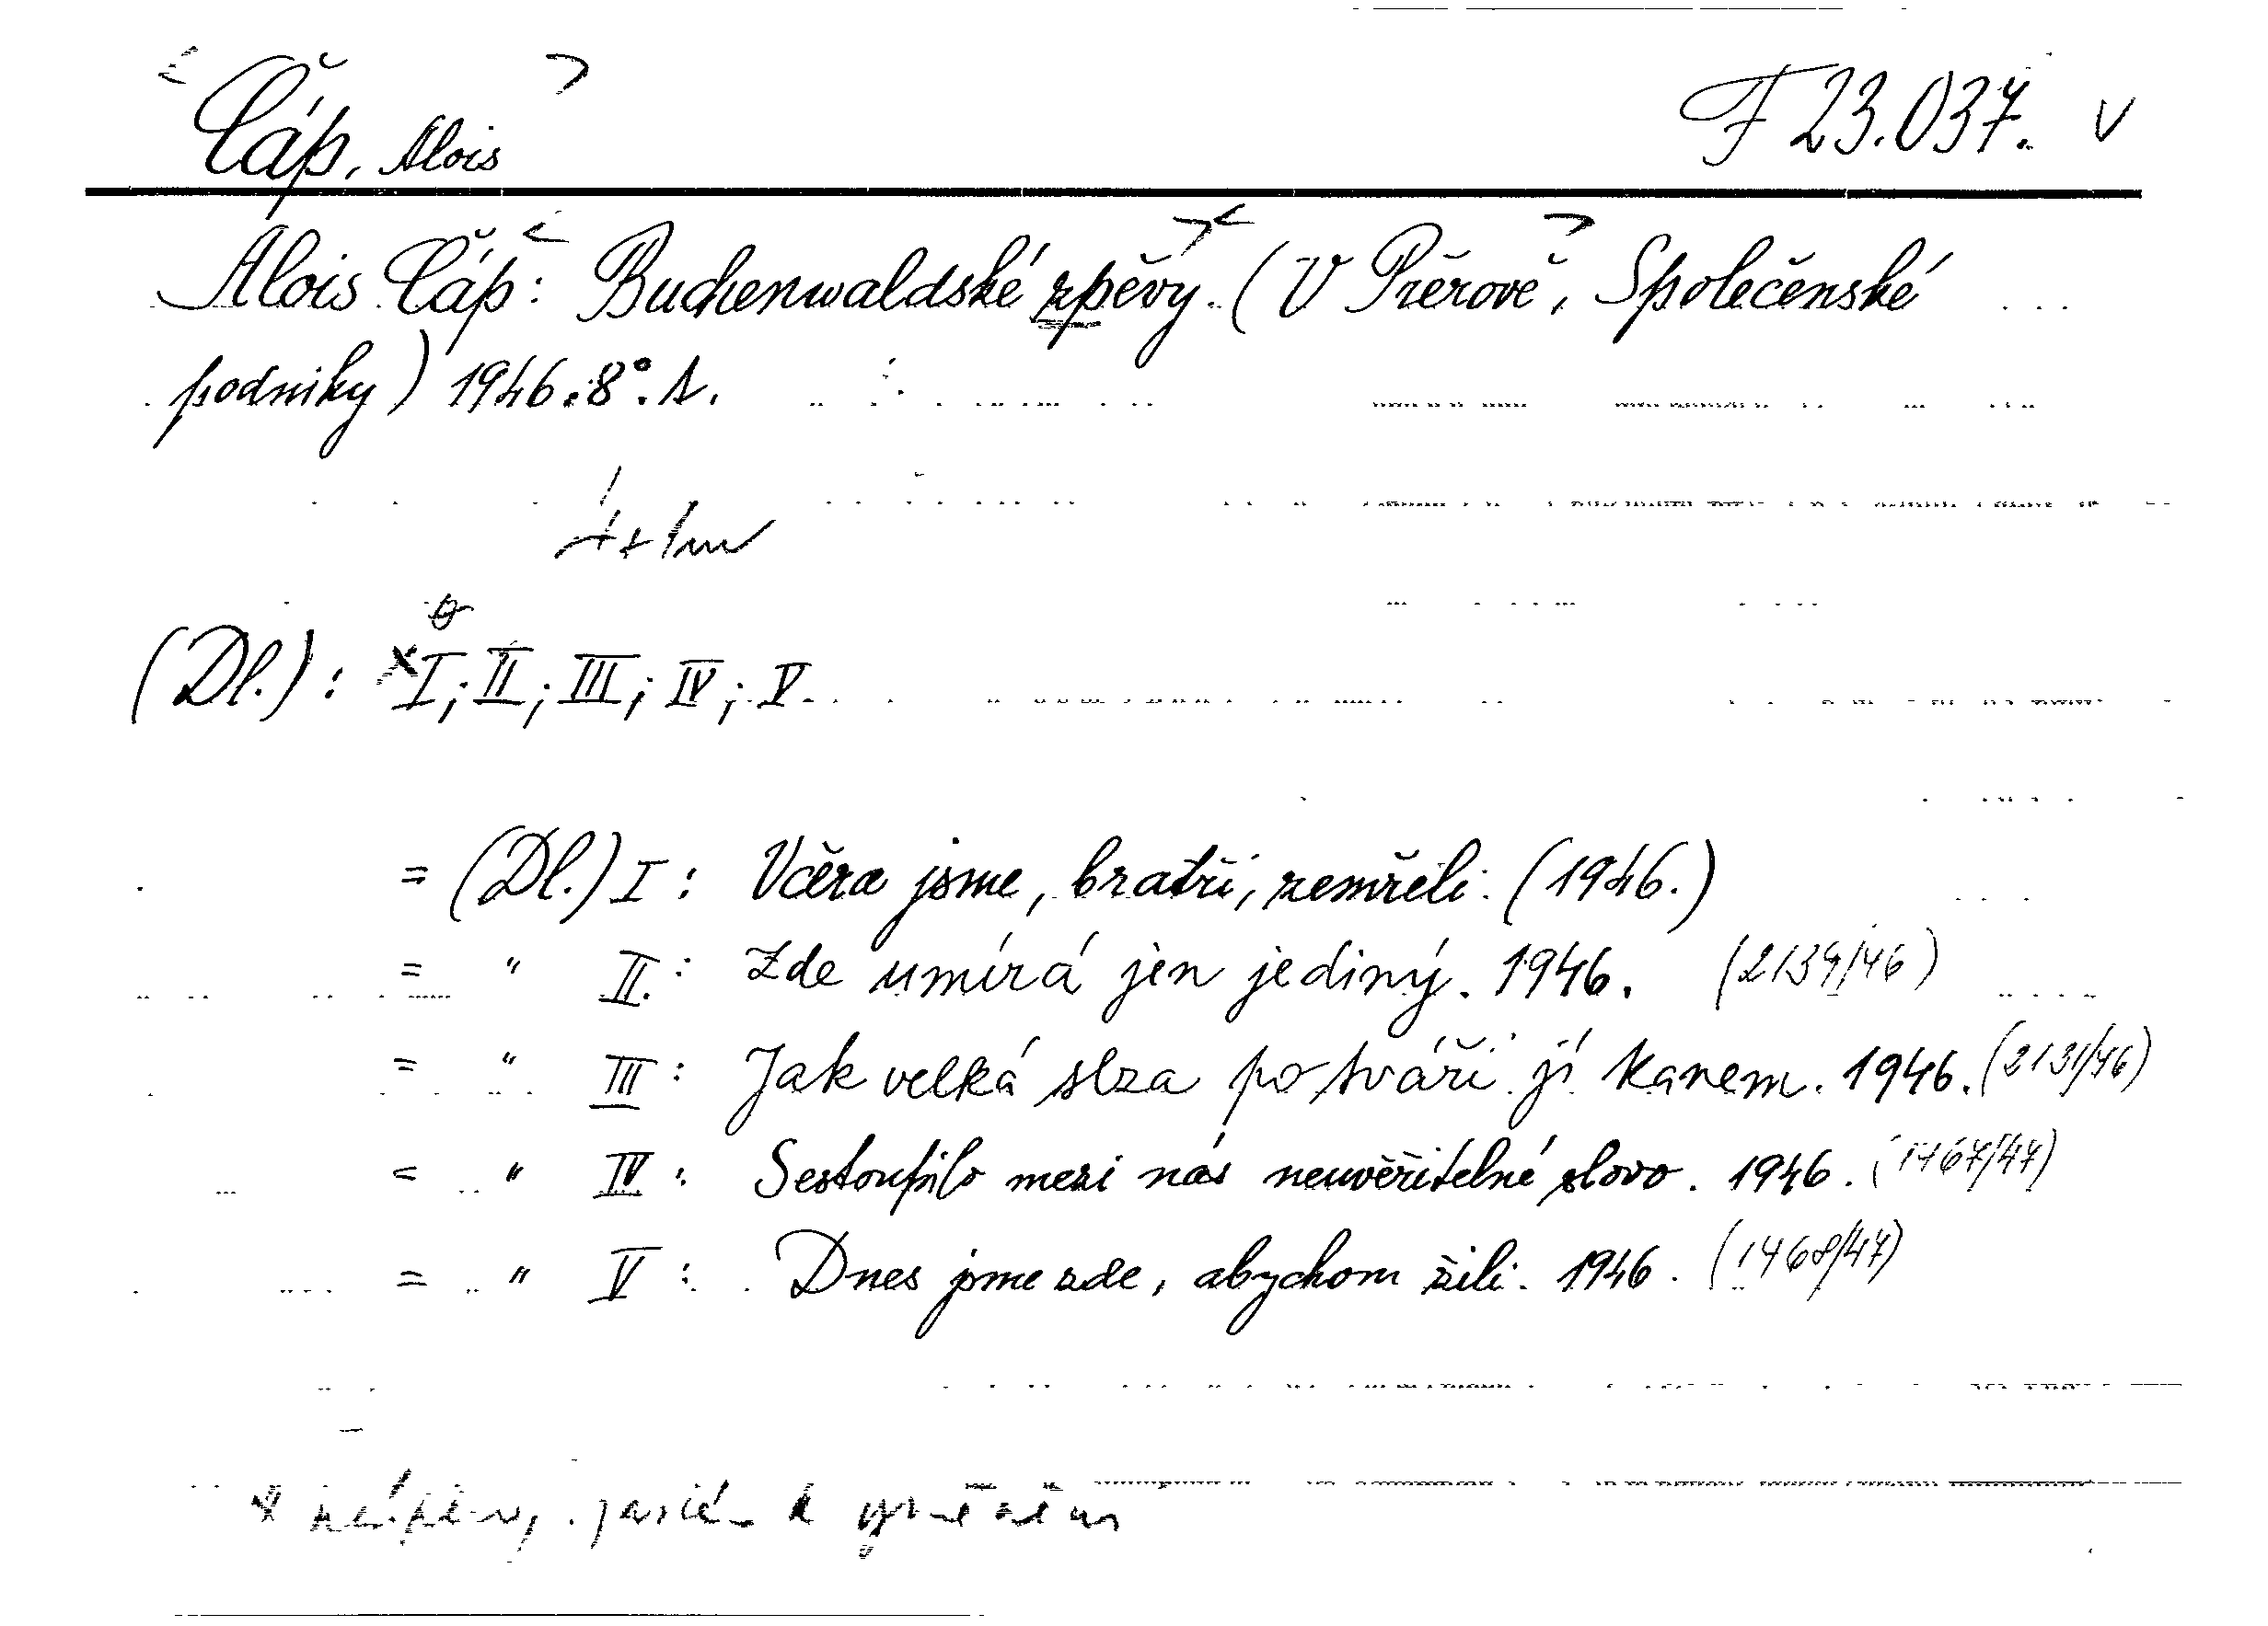 Čáp, Alois F 23.037. v
Alois Čáp: Buchenwaldské zpěvy. (V Přerově, Společenské
podniky) 1946. 8°. s.
(Dl.): I; II; III; IV; V.
= (Dl.) I: Včera jsme, bratři, zemřeli. (1946.)
= " II.: Zde umírá jen jediný. 1946. (2139/46)
= " III: Jak velká slza po tváři jí kanem. 1946. (2131/46)
= " IV: Sestoupilo mezi nás neuvěřitelné slovo. 1946. (1467/47)
= " V: Dnes jsme zde, abychom žili. 1946. (1468/47)
k